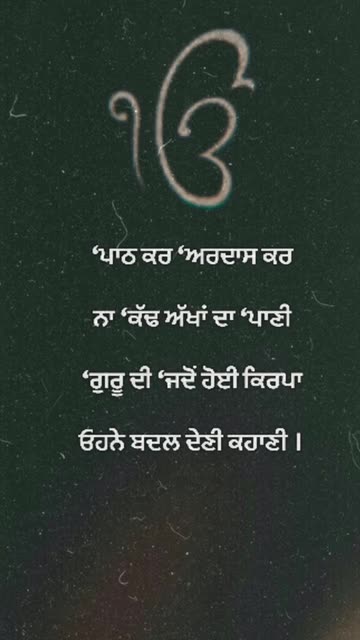 ੴ
‘ਪਾਠ ਕਰ ‘ਅਰਦਾਸ ਕਰ
ਨਾ ‘ਕੱਢ ਅੱਖਾਂ ਦਾ ‘ਪਾਣੀ
‘ਗੁਰੂ ਦੀ ‘ਜਦੋਂ ਹੋਈ ਕਿਰਪਾ
ਓਹਨੇ ਬਦਲ ਦੇਣੀ ਕਹਾਣੀ ।